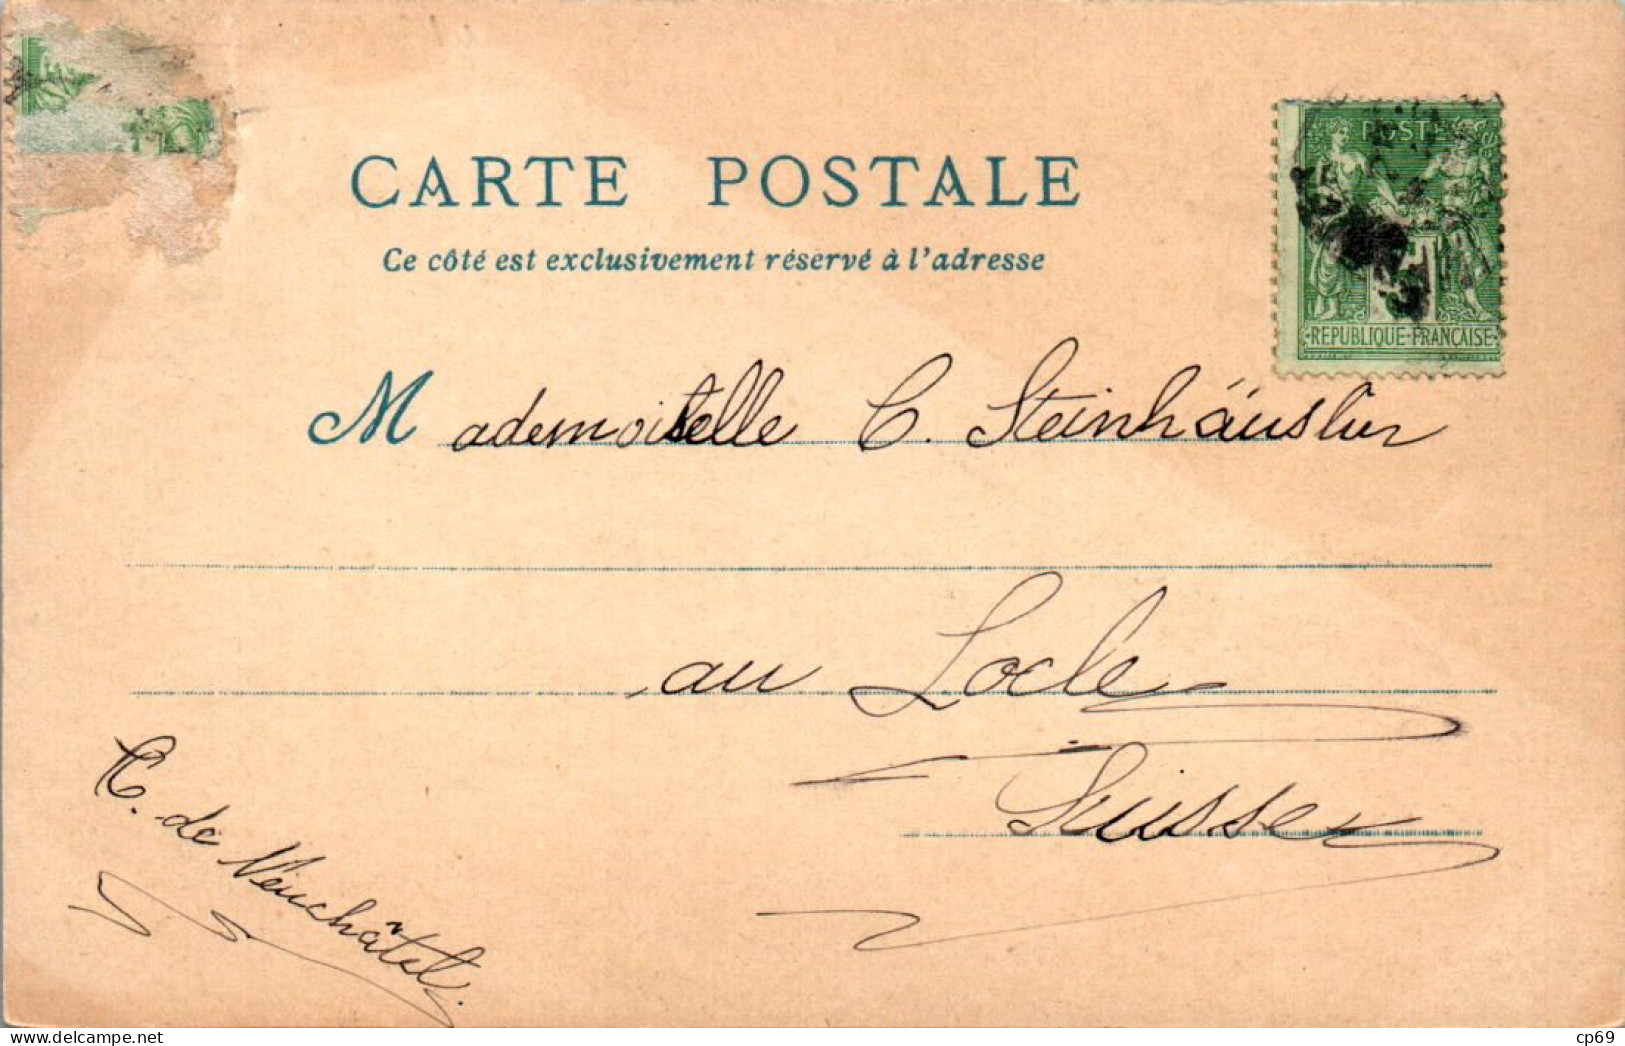 CARTE POSTALE
Ce côté est exclusivement réservé à l'adresse
POSTE
5
REPUBLIQUE-FRANÇAISE
Mademoiselle C. Steinhäuslin
au Locle
Suisse
C. de Neuchâtel.
www.delcampe.net
cp69